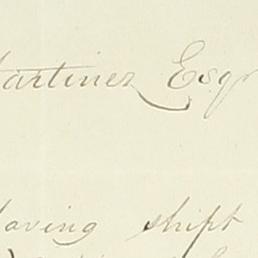 artinez Esqr
having shipt